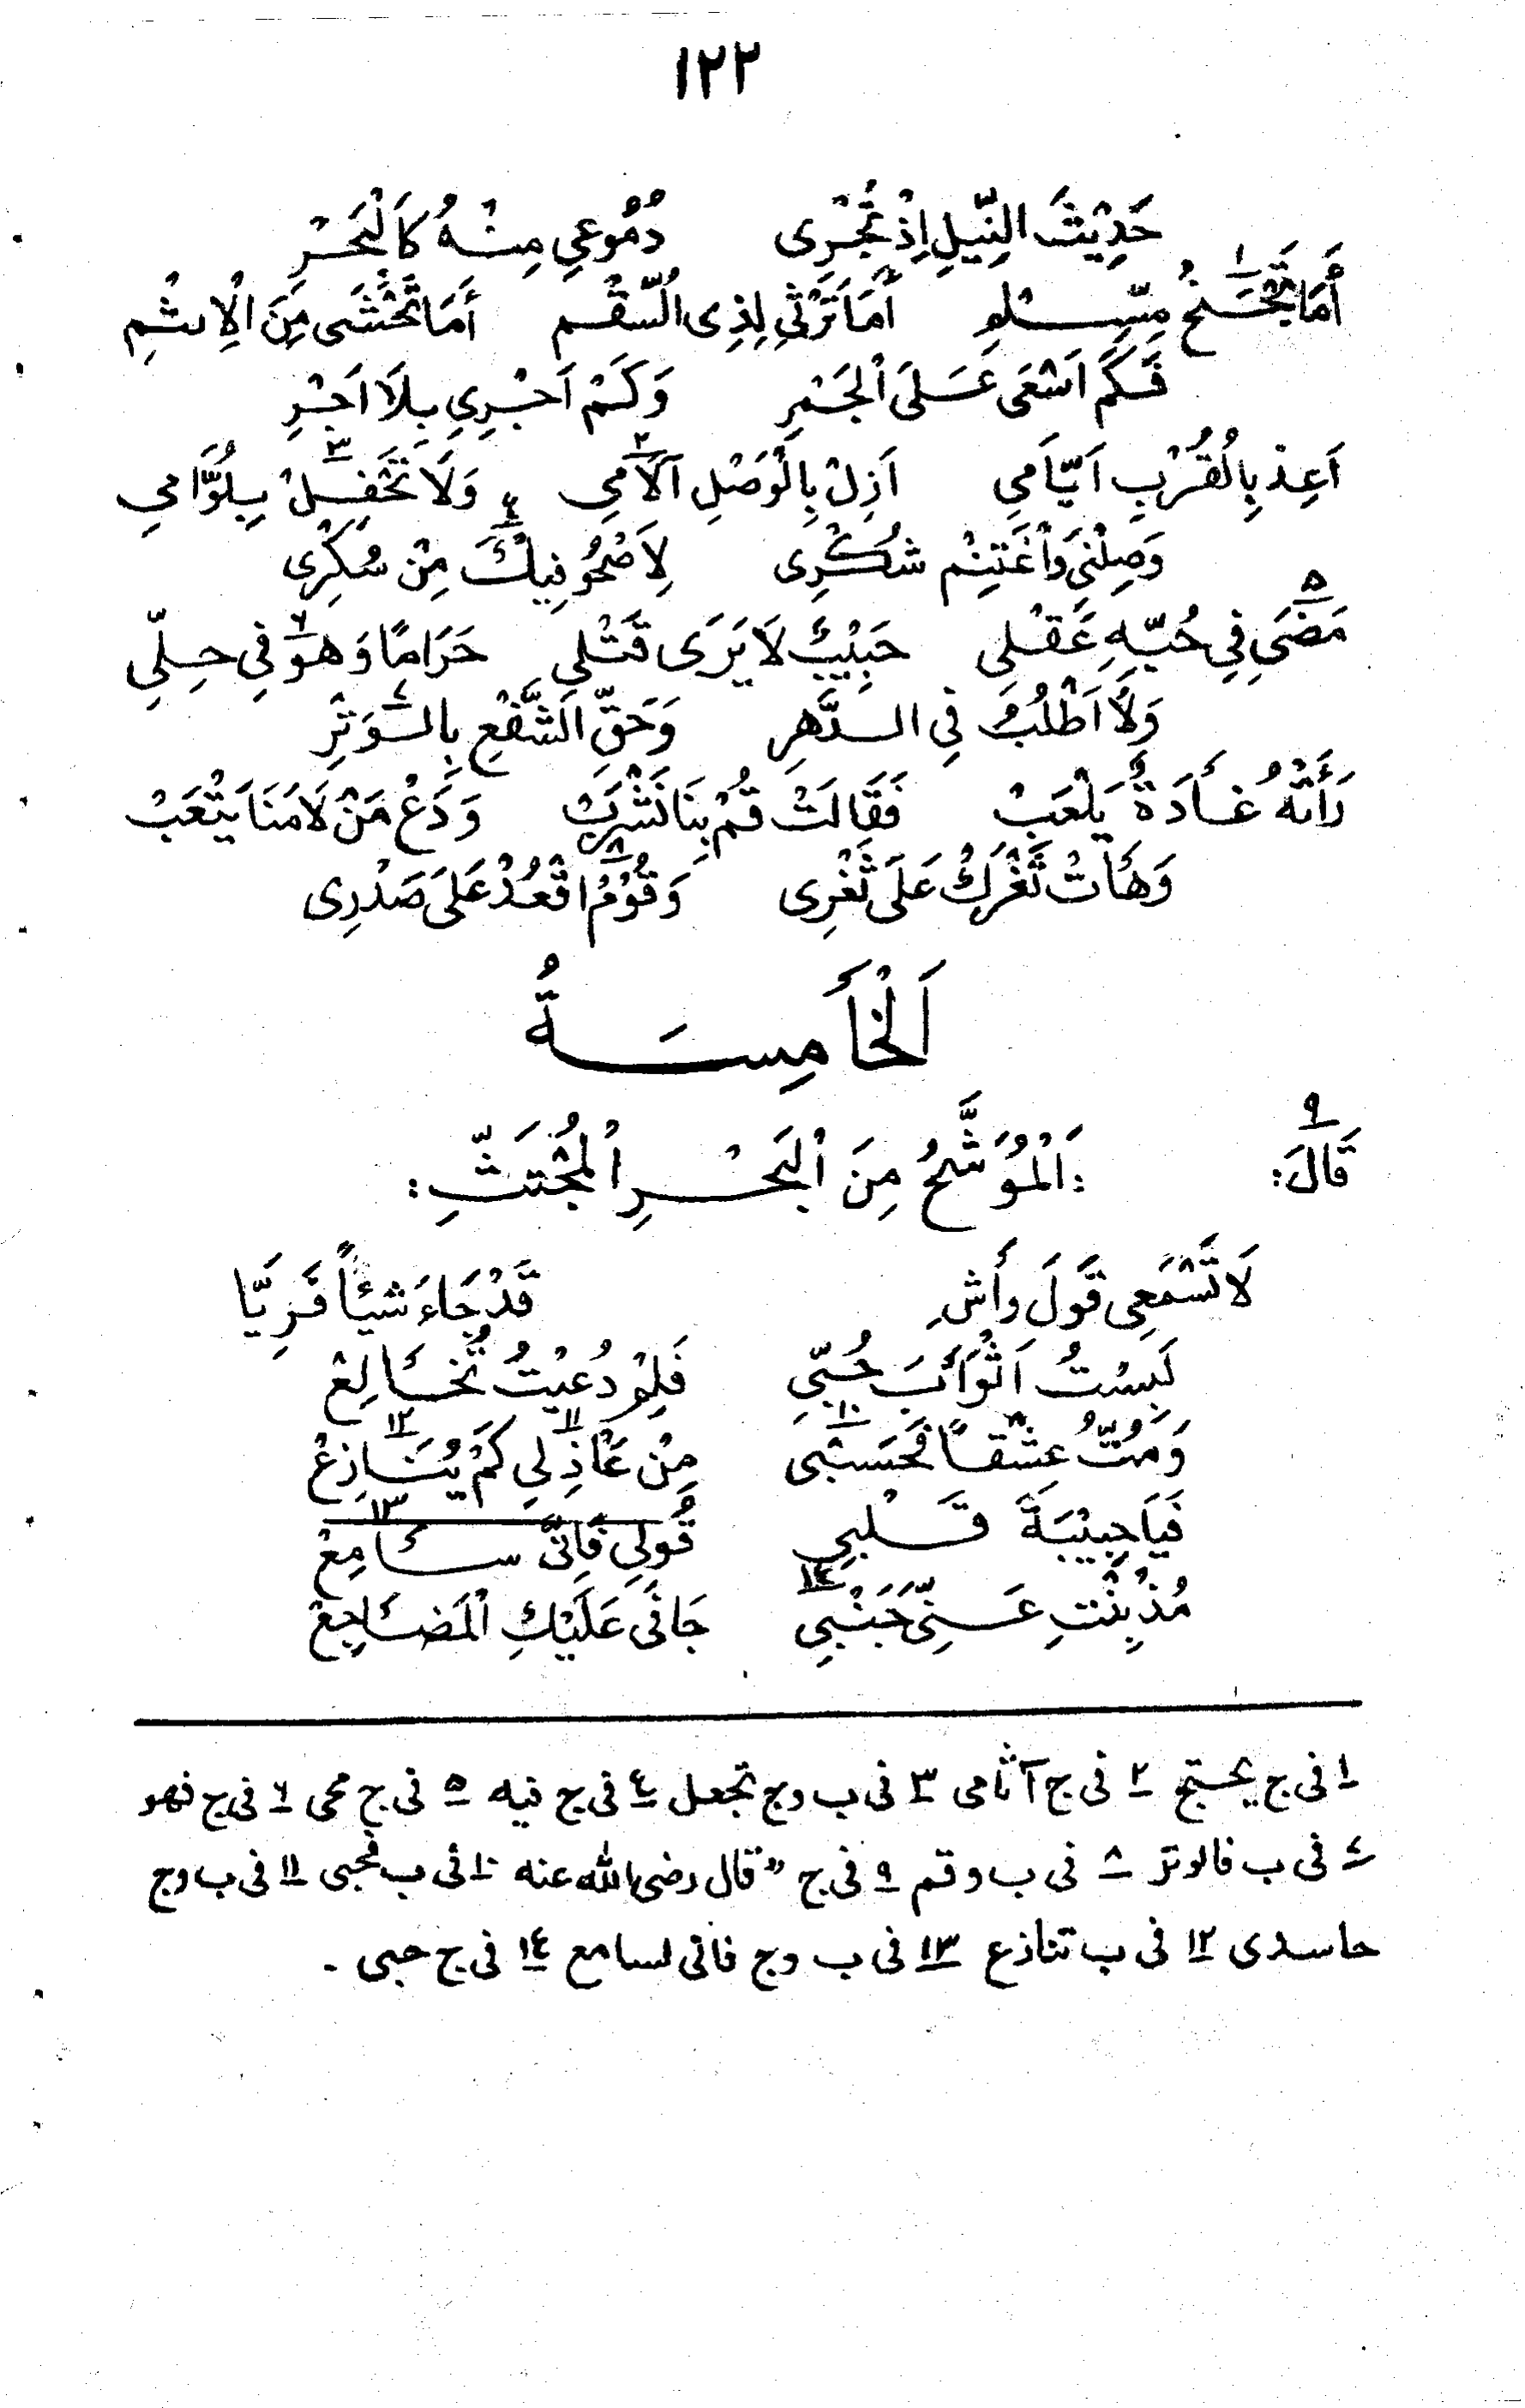 ١٢٢
حَدِيْثَ النِّيلِ اِذْ تُجْرِى دُمُوعِي مِنْهُ كَالْبَحْرِ
أَمَا تَجْنَحُ ١ لِلسِّلْمِ أَمَا تَرْثِي لِذِى السُّقْمِ أَمَا تَخْشَى مِنَ الْاِثْمِ
فَكَمْ اَسْعَى عَلَى الْجَمْرِ وَكَمْ اَجْرِي بِلَا اَجْرِ
اَعِدْ بِالْقُرْبِ اَيَّامِي اَزِلْ بِالْوَصْلِ آلَامِي ٢ وَلَا تَحْفِلْ ٣ بِلُوَّامِي
وَصِلْنِي وَاغْتَنِمْ شُكْرِى لِاَصْحُو فِيكَ ٤ مِنْ سُكْرِى
مَضَى ٥ فِي حُبِّهِ عَقْلِى حَبِيْبٌ لَا يَرَى قَتْلِي حَرَامًا وَهْوَ ٦ فِي حِلِّي
وَلَا اَطْلُبُ فِي الدَّهْرِ وَحَقِّ الشَّفْعِ بِالْوَتْرِ ٧
رَأَتْهُ غَادَةٌ يَلْعَبْ فَقَالَتْ قُمْ بِنَا نَشْرَبْ وَدَعْ مَنْ لَامَنَا يَتْعَبْ
وَهَاتْ ثَغْرَكْ عَلَى ثَغْرِى وَقُوْمُ ٨ اقْعُدْ عَلَى صَدْرِى
اَلْخَامِسَةُ
قَالَ ٩: :اَلْمُوَشَّحُ مِنَ الْبَحْرِ الْمُجْتَثِّ:
لَا تَسْمَعِى قَوْلَ وَاشٍ قَدْ جَاءَ شَيْئاً فَرِيَّا
لَبِسْتُ اَثْوَابَ حُبِّي فَلِمْ دُعِيْتُ بُخَالِعْ
وَمُتُّ عِشْقاً فَحَسْبِى ١٠ مِنْ عَاذِلِي ١١ كَمْ يُنَازِعْ ١٢
فَيَا حَبِيْبَةَ قَلْبِي قُولِي فَاِنِّى سَامِعْ ١٣
مُذْ بِنْتِ عَنِّى جَنْبِي ١٤ جَافَى عَلَيْكِ الْمَضَاجِعْ
١ فى ج يحتج ٢ فى ج آثامى ٣ فى ب وج تجعل ٤ فى ج فيه ٥ فى ج محى ٦ فى ج فهو
٧ فى ب فالوتر ٨ فى ب وقم ٩ فى ج " قال رضى الله عنه ١٠ فى ب فحبى ١١ فى ب وج
حاسدى ١٢ فى ب تنازع ١٣ فى ب وج فانى لسامع ١٤ فى ج حبى .